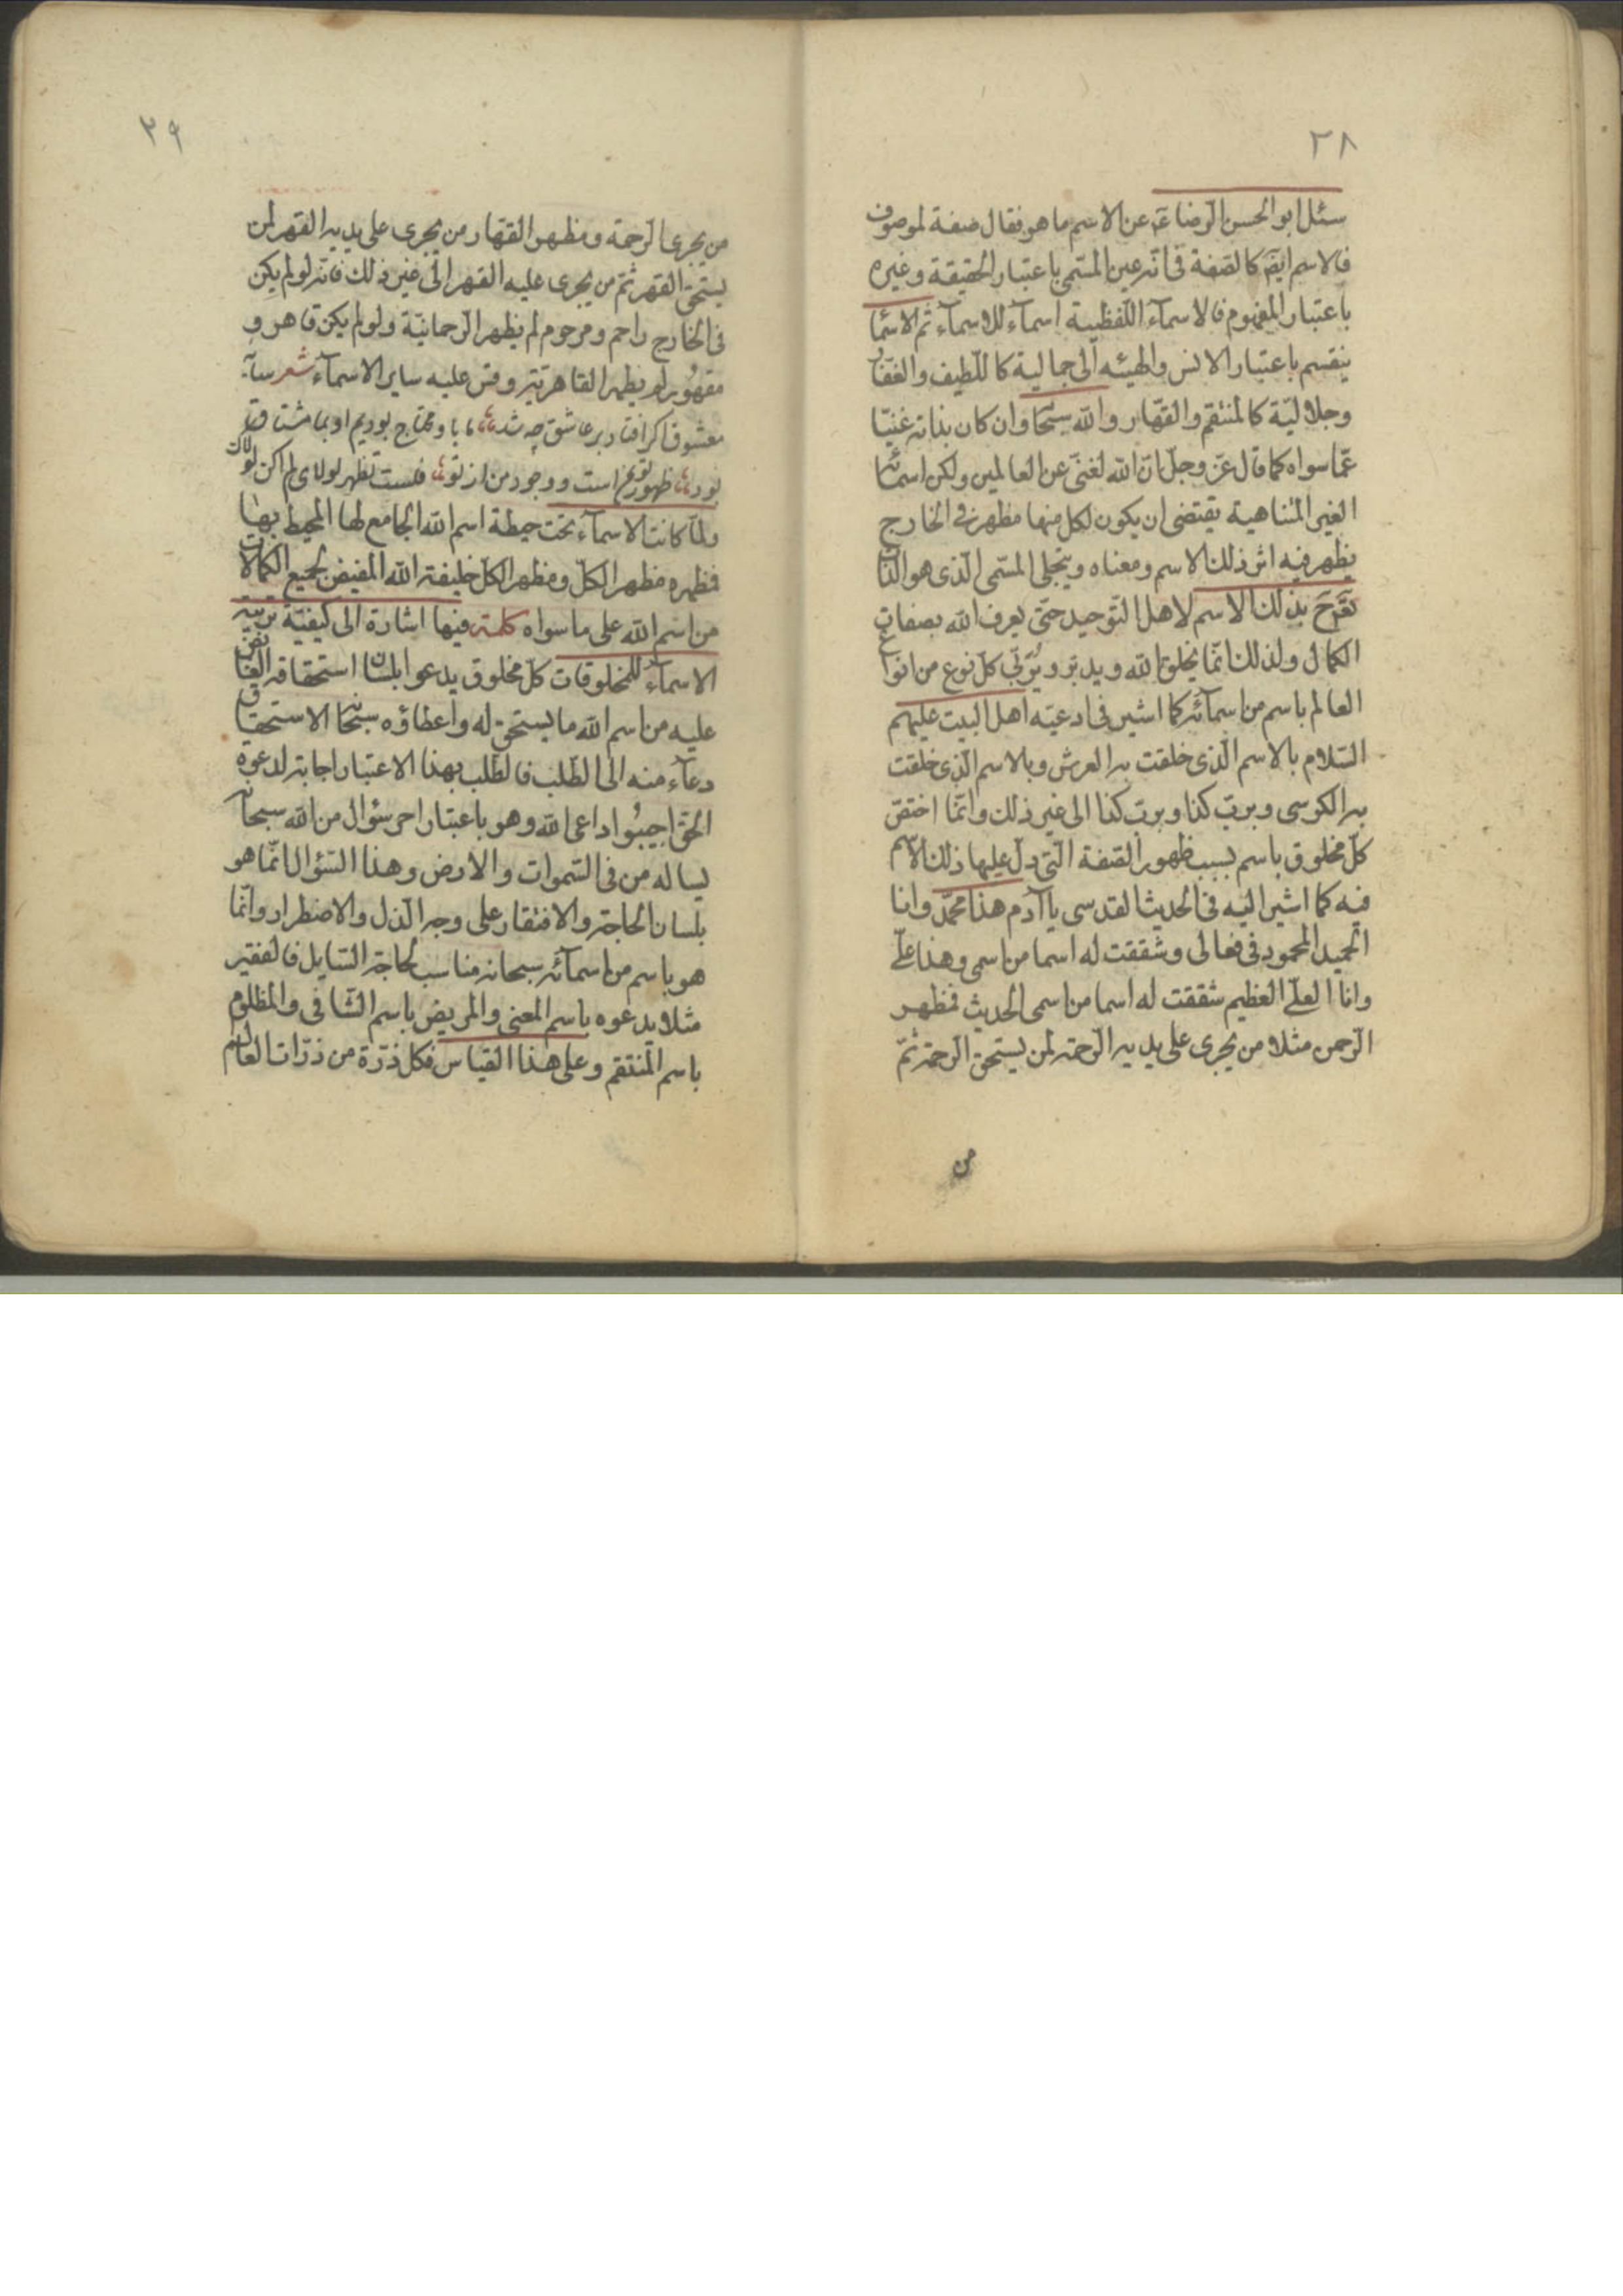 ٢٨
سئل ابو الحسن الرضا عۤ عن الاسم ما هو فقال صفة لموصوف
فالاسم ايضۤ كالصفة فى انّه عين المسمّى باعتبار الحقيقة وغيره
باعتبار المفهوم فالاسماۤء اللّفظية اسماۤء للاسماۤء ثم الاسمۤا
ينقسم باعتبار الانس والهيئه الى جمالية كاللّطيف والغفّار
وجلاليّة كالمنتقم والقهّار والله سبحۤا وان كان بذاته غنيّا
عمّا سواه كما قال عزّ وجلّ انّ الله لغنىّ عن العالمين ولكن اسمائه
الغير المتناهية يقتضى ان يكون لكل منها مظهر فى الخارج
يظهر فيه اثر ذلك الاسم ومعناه ويتجلى المسمّى الّذى هو الذّات
بذلك الاسم لاهل التّوحيد حتّى يعرف الله بصفات
الكمال ولذلك انّما يخلق الله ويدبّر ويُربّى كلّ نوع من انواع
العالم باسم من اسمآئه كما اشير فى ادعيّه اهل البيت عليهم
السّلام بالاسم الّذى خلقت به العرش وبالاسم الّذى خلقت
به الكرسى وبربّ كذا وبربّ كذا الى غير ذلك وانّما اختصّ
كلّ مخلوق باسم بسبب ظهور الصّفة الّتى دلّ عليها ذلك الاسم
فيه كما اشير اليه فى الحديث القدسى يا آدم هذا محمّد وانا
الحميد المحمود فى فعالى وشققت له اسما من اسمى وهذا علىّ
وانا العلىّ العظيم شققت له اسما من اسمى الحديث فمظهر
الرّحمن مثلا من يجرى على يديه الرّحمة لمن يستحق الرّحمة ثمّ
من
٢٩
من يجرى الرّحمة ومظهر القهّار من يجرى على يديه القهر لمن
يستحق القهر ثمّ من يجرى عليه القهر الى غير ذلك فانّه لو لم يكن
فى الخارج راحم ومرحوم لم يظهر الرّحمانيّة ولو لم يكن قاهر و
مقهور لم يظهر القاهريّة وقس عليه ساير الاسماۤء شعر سايۀ
معشوق اكر افتاد بر عاشق چه شد ؛؛ ما باو محتاج بوديم او بما مشتاق
بود ؛؛ ظهور تو بمن است و وجود من از تو ؛؛ فلست تظهر لولاى لم اكن لولاك
ولمّا كانت الاسماۤء تحت حيطة اسم الله الجامع لها المحيط بها
فمظهره مظهر الكلّ ومظهر الكلّ خليفة الله المفيض لجميع الكمالات
من اسم الله على ما سواه كلمة فيها اشارة الى كيفيّة تربية
الاسماۤء للمخلوقات كلّ مخلوق يدعو بلسان استحقاقه الفائض
عليه من اسم الله ما يستحق له واعطاؤه سبحانه الاستحقاق
دعاۤء منه الى الطّلب فالطّلب بهذا الاعتبار اجابة لدعوة
الحق اجيبُوا داعى الله وهو باعتبار اخر سؤال من الله سبحانه
يساله من فى السّموات والارض وهذا السّؤال انّما هو
بلسان الحاجة والافتقار على وجه الذّل والاضطرار وانّما
هو باسم من اسمآئه سبحانه مناسب لحاجة السّايل فالفقير
مثلا يدعوه باسم المغنى والمريض باسم الشّافى والمظلوم
باسم المنتقم وعلى هذا القياس فكل ذرّة من ذرّات العالم